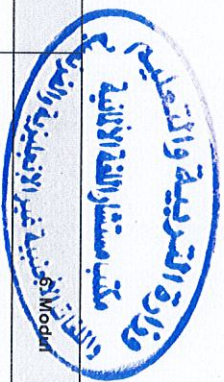 وزارة التربية والتعليم
مكتب مستشار اللغة الألمانية
واللغات الأجنبية غير الإنجليزية والفرنسية
6. Modul